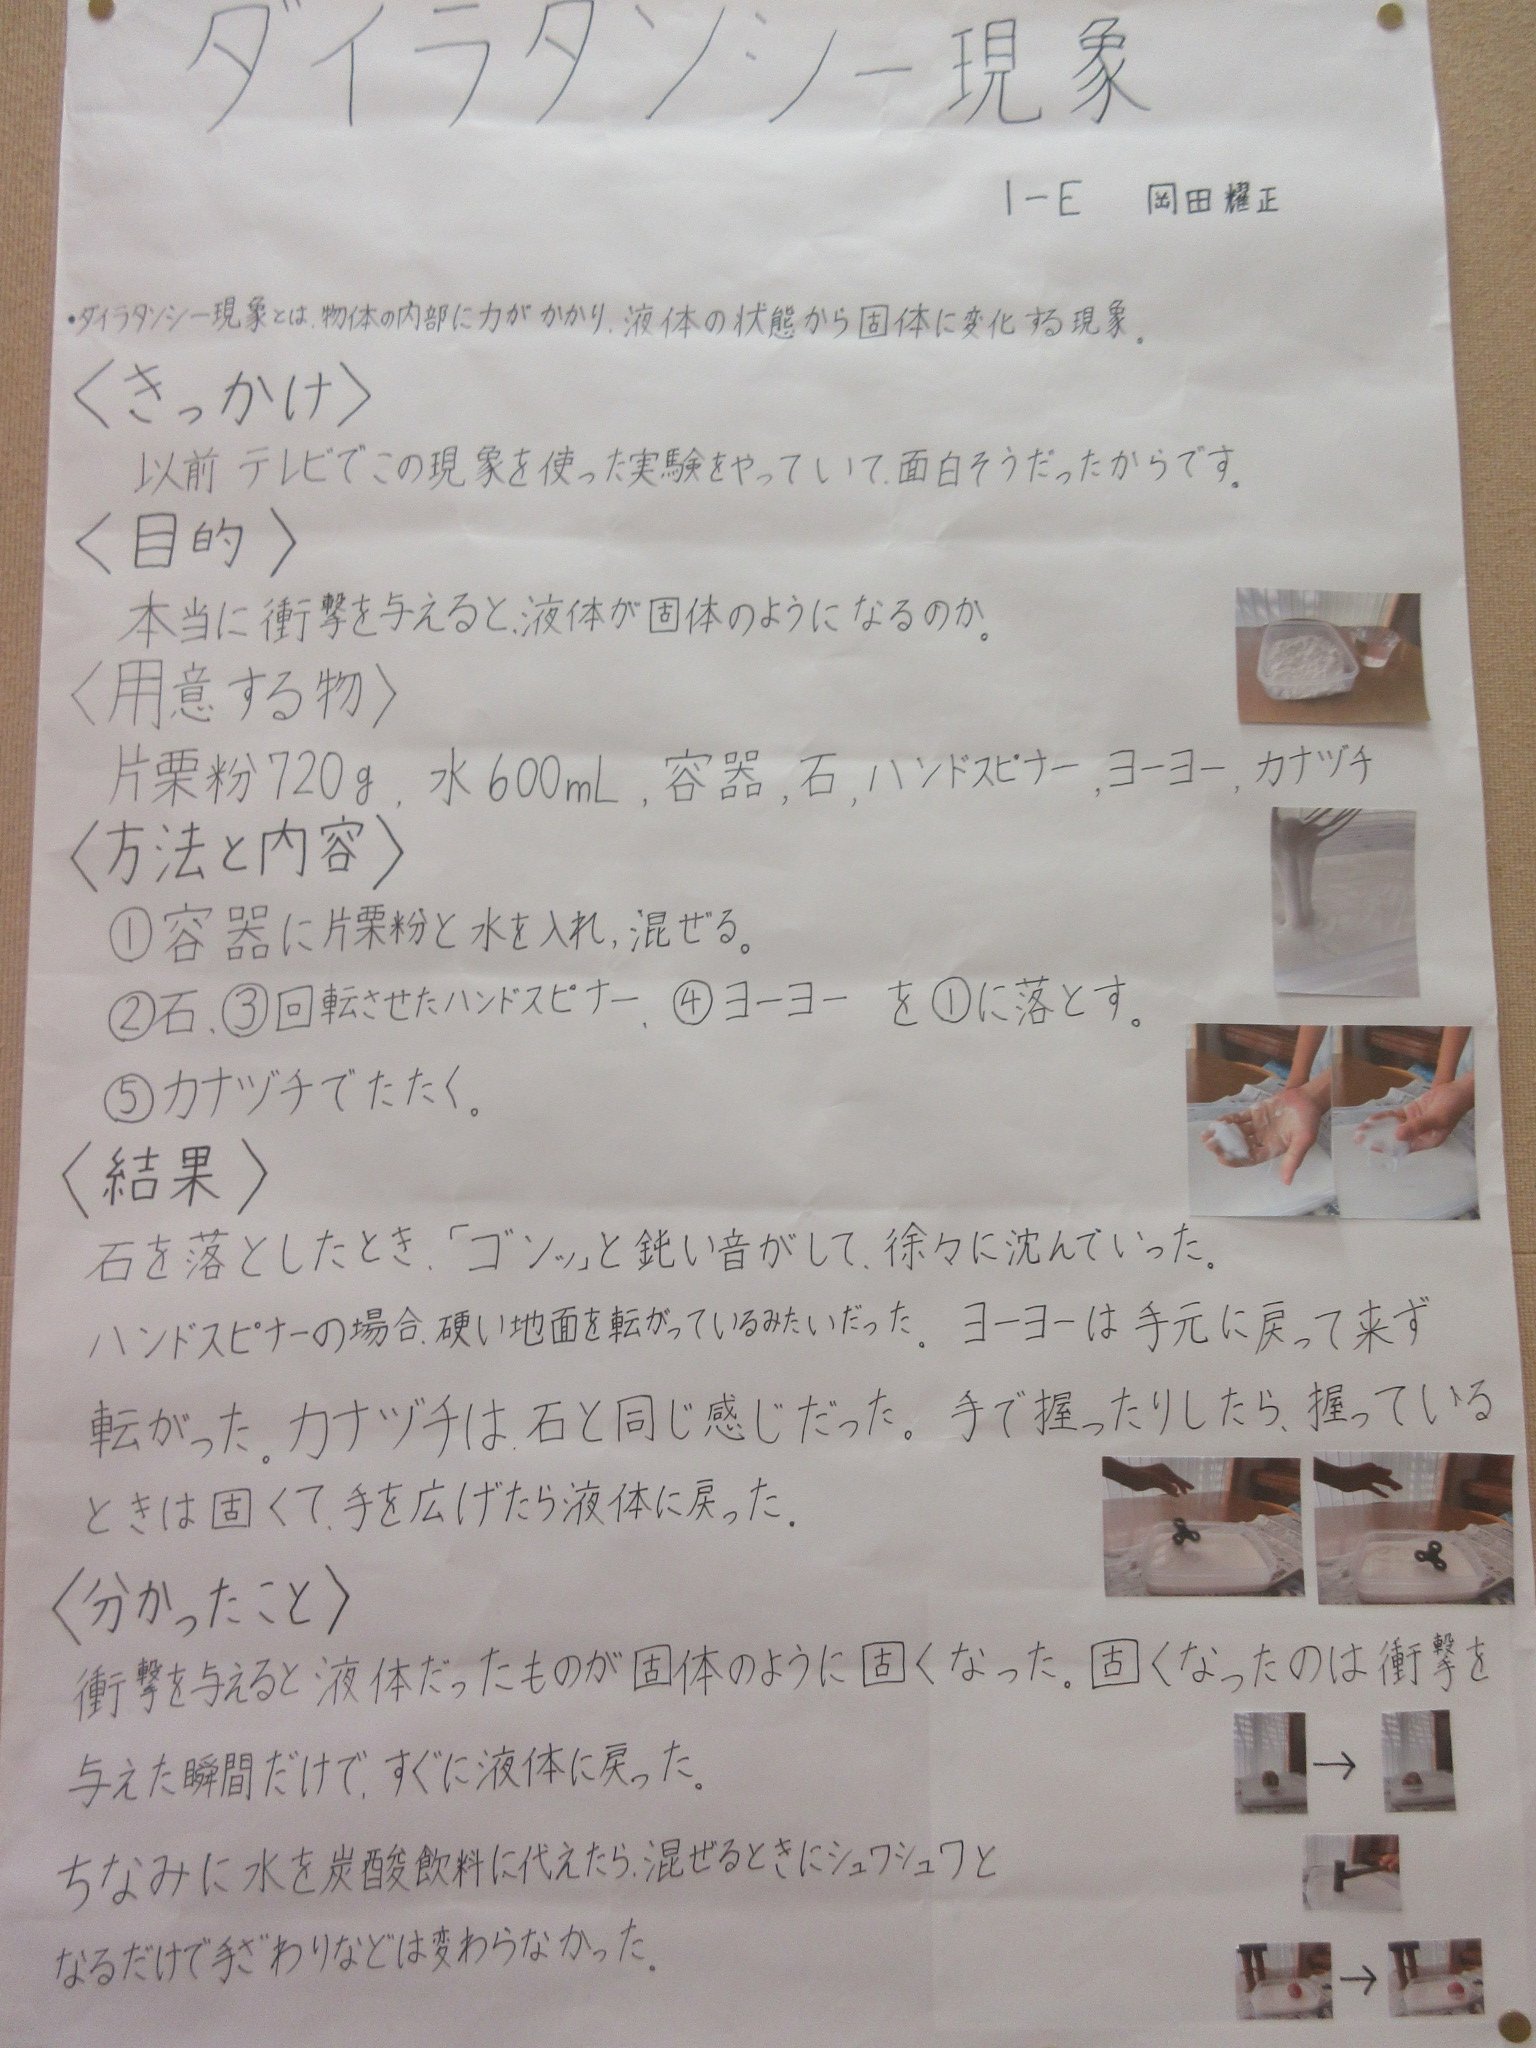 ダイラタンシー現象
1-E 岡田耀正
・ダイラタンシー現象とは、物体の内部に力がかかり、液体の状態から固体に変化する現象。
〈きっかけ〉
以前テレビでこの現象を使った実験をやっていて、面白そうだったからです。
〈目的〉
本当に衝撃を与えると、液体が固体のようになるのか。
〈用意する物〉
片栗粉720g, 水600mL, 容器, 石, ハンドスピナー, ヨーヨー, カナヅチ
〈方法と内容〉
①容器に片栗粉と水を入れ, 混ぜる。
②石、③回転させたハンドスピナー、④ヨーヨー を①に落とす。
⑤カナヅチでたたく。
〈結果〉
石を落としたとき、「ゴンッ」と鈍い音がして、徐々に沈んでいった。
ハンドスピナーの場合、硬い地面を転がっているみたいだった。ヨーヨーは手元に戻って来ず
転がった。カナヅチは、石と同じ感じだった。手で握ったりしたら、握っている
ときは固くて、手を広げたら液体に戻った。
〈分かったこと〉
衝撃を与えると液体だったものが固体のように固くなった。固くなったのは衝撃を
与えた瞬間だけで、すぐに液体に戻った。
→
ちなみに水を炭酸飲料に代えたら、混ぜるときにシュワシュワと
なるだけで手ざわりなどは変わらなかった。
→